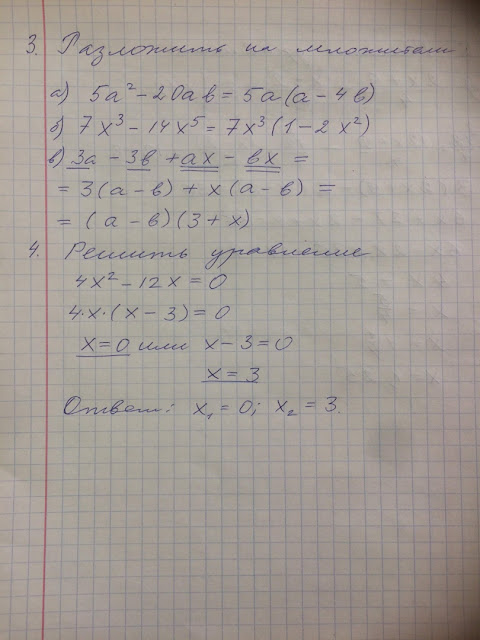 3. Разложить на множители:
а) 5a² - 20ab = 5a(a - 4b)
б) 7x³ - 14x⁵ = 7x³(1 - 2x²)
в) 3a - 3b + ax - bx =
= 3(a - b) + x(a - b) =
= (a - b)(3 + x)
4. Решить уравнение
4x² - 12x = 0
4·x·(x - 3) = 0
x = 0 или x - 3 = 0
x = 3
Ответ: x₁ = 0; x₂ = 3.